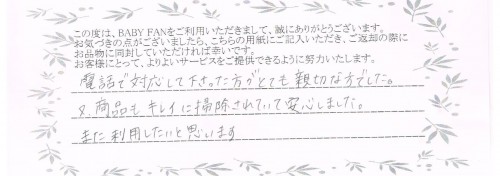 この度は、BABY FANをご利用いただきまして、誠にありがとうございます。
お気づきの点がございましたら、こちらの用紙にご記入いただき、ご返却の際に
お品物に同封していただければ幸いです。
お客様にとって、よりよいサービスをご提供できるように努力いたします。
電話で対応して下さった方がとても親切な方でした。
又、商品もキレイに掃除されていて安心しました。
また利用したいと思います